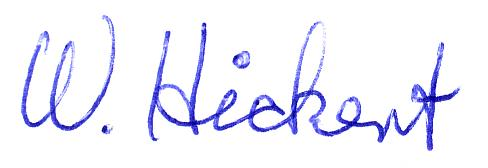 W. Hickent